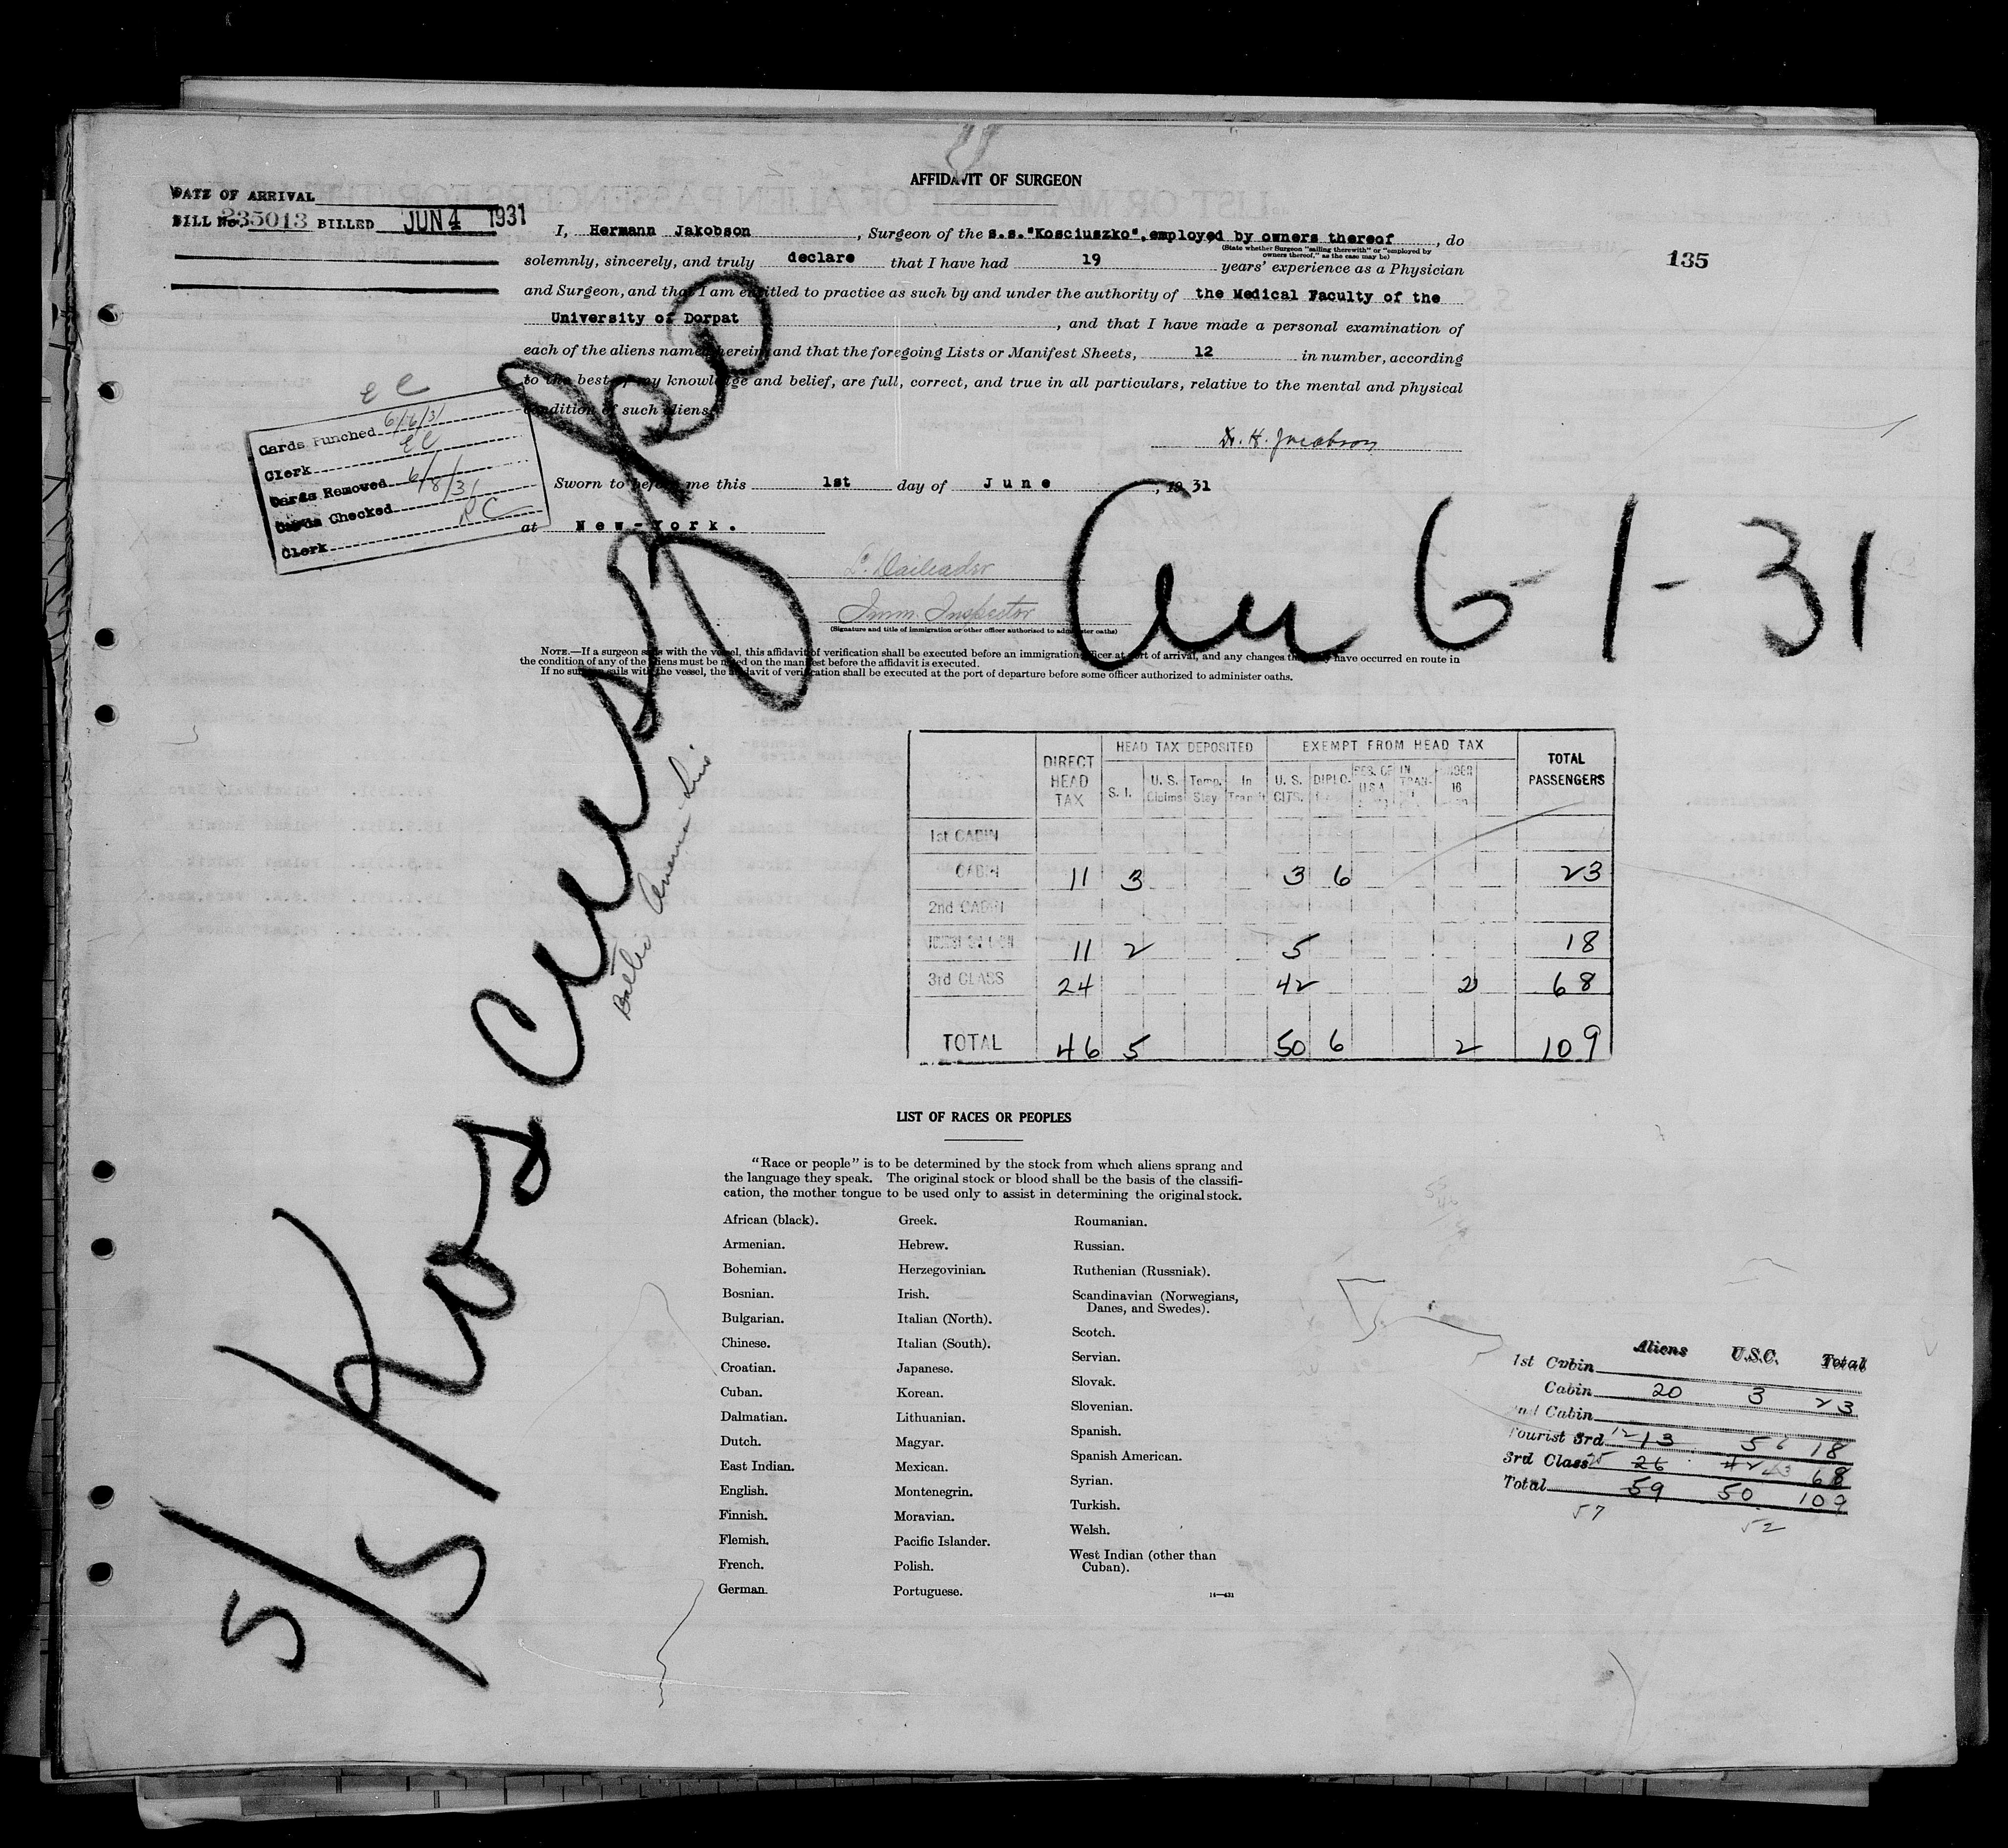 AFFIDAVIT OF SURGEON
DATE OF ARRIVAL
BILL No. 235013 BILLED JUN 4 1931
135
I, Hermann Jakobson, Surgeon of the s.s."Kosciuszko", employed by owners thereof, do
(State whether Surgeon "sailing therewith" or "employed by
owners thereof," as the case may be)
solemnly, sincerely, and truly declare that I have had 19 years' experience as a Physician
and Surgeon, and that I am entitled to practice as such by and under the authority of the Medical Faculty of the
University of Dorpat, and that I have made a personal examination of
each of the aliens named herein, and that the foregoing Lists or Manifest Sheets, 12 in number, according
to the best of my knowledge and belief, are full, correct, and true in all particulars, relative to the mental and physical
condition of such aliens.
Dr. H. Jacobson
Sworn to before me this 1st day of June, 1931
at New-York.
Imm. Inspector
(Signature and title of immigration or other officer authorized to administer oaths)
E C
Cards Punched 6/6/31
Clerk E C
Cards Removed 6/8/31
Cards Checked R C
Clerk
NOTE.—If a surgeon sails with the vessel, this affidavit of verification shall be executed before an immigration officer at port of arrival, and any changes that may have occurred en route in
the condition of any of the aliens must be noted on the manifest before the affidavit is executed.
If no surgeon sails with the vessel, the affidavit of verification shall be executed at the port of departure before some officer authorized to administer oaths.
S/S Kosciuszko
Baltic America Line
6-1-31
DIRECT HEAD TAX HEAD TAX DEPOSITED EXEMPT FROM HEAD TAX TOTAL PASSENGERS
S. I. U. S. Claims Temp. Stay In Transit U. S. CITS. DIPLO. RES. OF U.S.A. IN TRAN- UNDER 16
1st CABIN
CABIN 11 3 3 6 23
2nd CABIN
11 2 5 18
3rd CLASS 24 42 2 68
TOTAL 46 5 50 6 2 109
LIST OF RACES OR PEOPLES
"Race or people" is to be determined by the stock from which aliens sprang and
the language they speak. The original stock or blood shall be the basis of the classifi-
cation, the mother tongue to be used only to assist in determining the original stock.
African (black).
Armenian.
Bohemian.
Bosnian.
Bulgarian.
Chinese.
Croatian.
Cuban.
Dalmatian.
Dutch.
East Indian.
English.
Finnish.
Flemish.
French.
German.
Greek.
Hebrew.
Herzegovinian.
Irish.
Italian (North).
Italian (South).
Japanese.
Korean.
Lithuanian.
Magyar.
Mexican.
Montenegrin.
Moravian.
Pacific Islander.
Polish.
Portuguese.
Roumanian.
Russian.
Ruthenian (Russniak).
Scandinavian (Norwegians,
Danes, and Swedes).
Scotch.
Servian.
Slovak.
Slovenian.
Spanish.
Spanish American.
Syrian.
Turkish.
Welsh.
West Indian (other than
Cuban).
14—431
Aliens U.S.C. Total
1st Cabin
Cabin 20 3 23
2nd Cabin
Tourist 3rd 12 13 5 6 18
3rd Class 25 26 42 43 68
Total 59 50 109
57 52